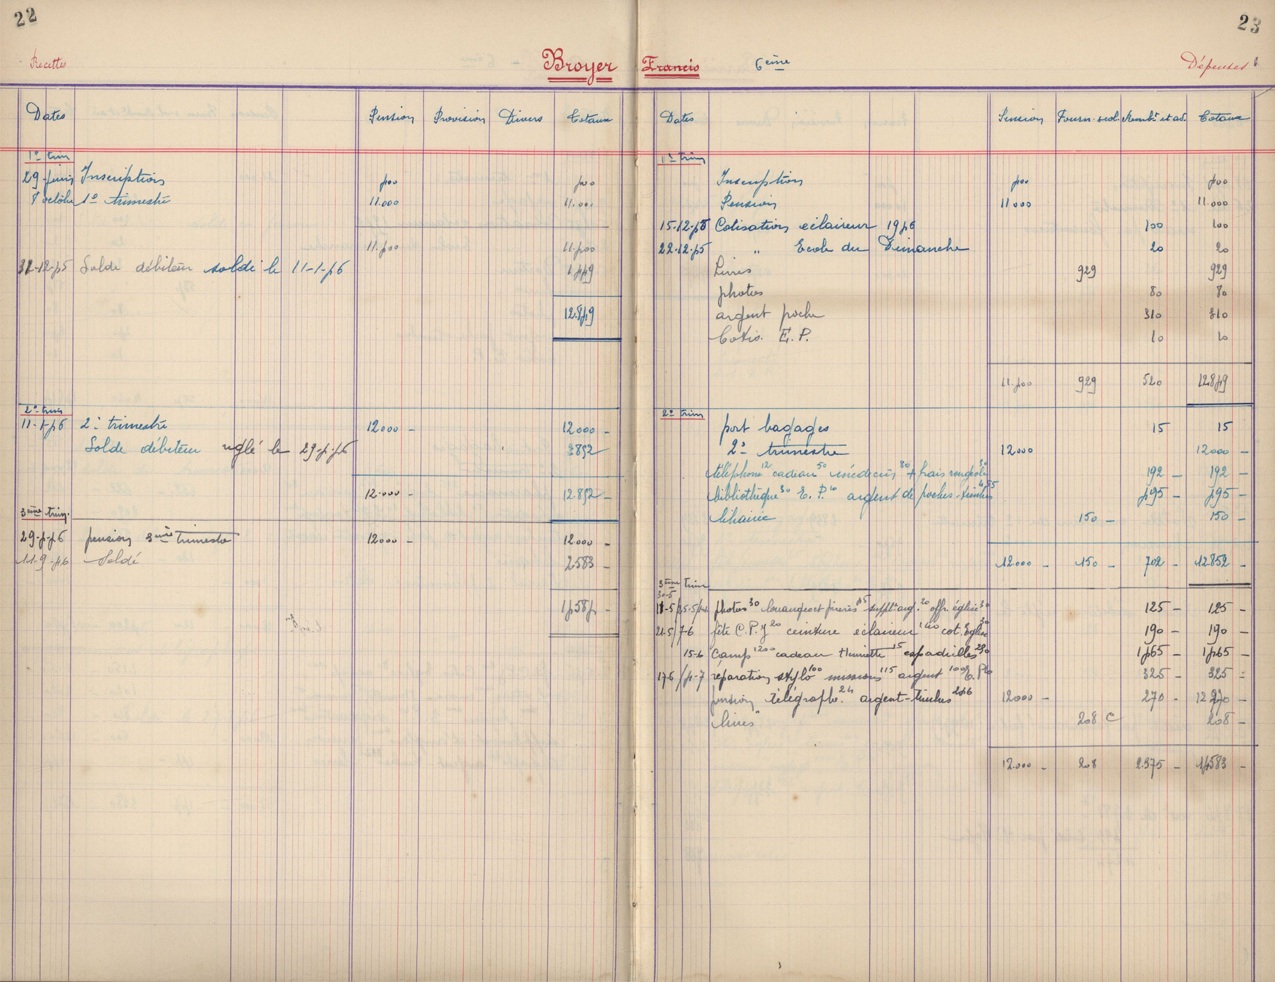 22
Recettes
Broyer
Dates
Pension Provision Divers Totaux
1er trim
29 juin Inscription 500 500
8 octobre 1er trimestre 11.000 11.000
11.500 11.500
31-12-55 Solde débiteur soldé le 11-1-56 1.559
12.859
2e trim
11-1-56 2e trimestre 12000 - 12000 -
Solde débiteur réglé le 29-5-56 852
12.000 - 12.852 -
3ème trim.
29-5-56 pension 3ème trimestre 12000 - 12000 -
11-9-56 Soldé 2583 -
23
Francis
6ème
Dépenses
Dates
Pension Fourn. scol. Totaux
1er trim
Inscription 500 500
Pension 11000 11.000
15-12-55 Cotisation éclaireur 1956 100 100
22-12-55 " Ecole du Dimanche 20 20
Livres 929 929
photos 80 80
argent poche 310 310
Cotis. E.P. 10 10
11.500 929 520 12859
2e trim
port bagages 15 15
2e trimestre 12000 12000 -
téléphone 12 cadeau 50 médecins 30 + frais 192 - 192 -
bibliothèque 30 E.P. 10 argent de poche-timbres 455 495 - 495 -
librairie 150 - 150 -
12000 - 150 - 702 - 12852 -
3ème trim
photos 30 argt. 20 offr. église 30 125 - 125 -
fête C.P.J 20 ceinture éclaireur 140 cot. Eglise 30 190 - 190 -
15-6 Camp 1200 cadeau Henriette 75 espadrilles 290 1565 - 1565 -
17-6 /5-7 réparation stylo 100 missions 115 argent 100 E.P. 10 325 - 325 -
pension télégraph. 24 argent-timbres 246 12000 - 270 - 12270 -
livres 208 208 -
12000 - 208 2375 - 14583 -